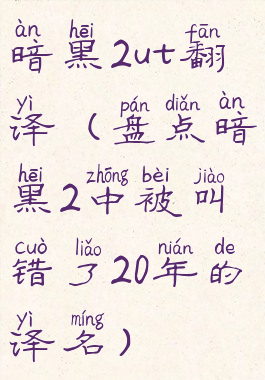 àn hēi fān
暗黑2ut翻
yì pán diǎn àn
译（盘点暗
hēi zhōng bèi jiào
黑2中被叫
cuò liǎo nián de
错了20年的
yì míng
译名）